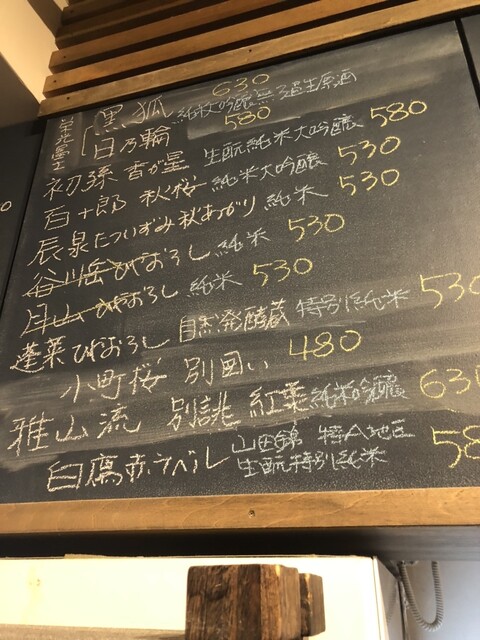 栄光冨士
黒狐 純米大吟醸無ろ過生原酒 630
日乃輪 580
初孫 香が星 生酛純米大吟醸 580
百十郎 秋桜 純米大吟醸 530
辰泉 たついずみ 秋あがり 純米 530
谷川岳 ひやおろし 純米 530
月山 ひやおろし 純米 530
蓬莱 ひやおろし 自然発酵蔵 特別純米 530
小町桜 別囲い 480
雅山流 別誂 紅葉 純米吟醸 630
白鷹 赤ラベル 山田錦 特A地区
生酛特別純米 58